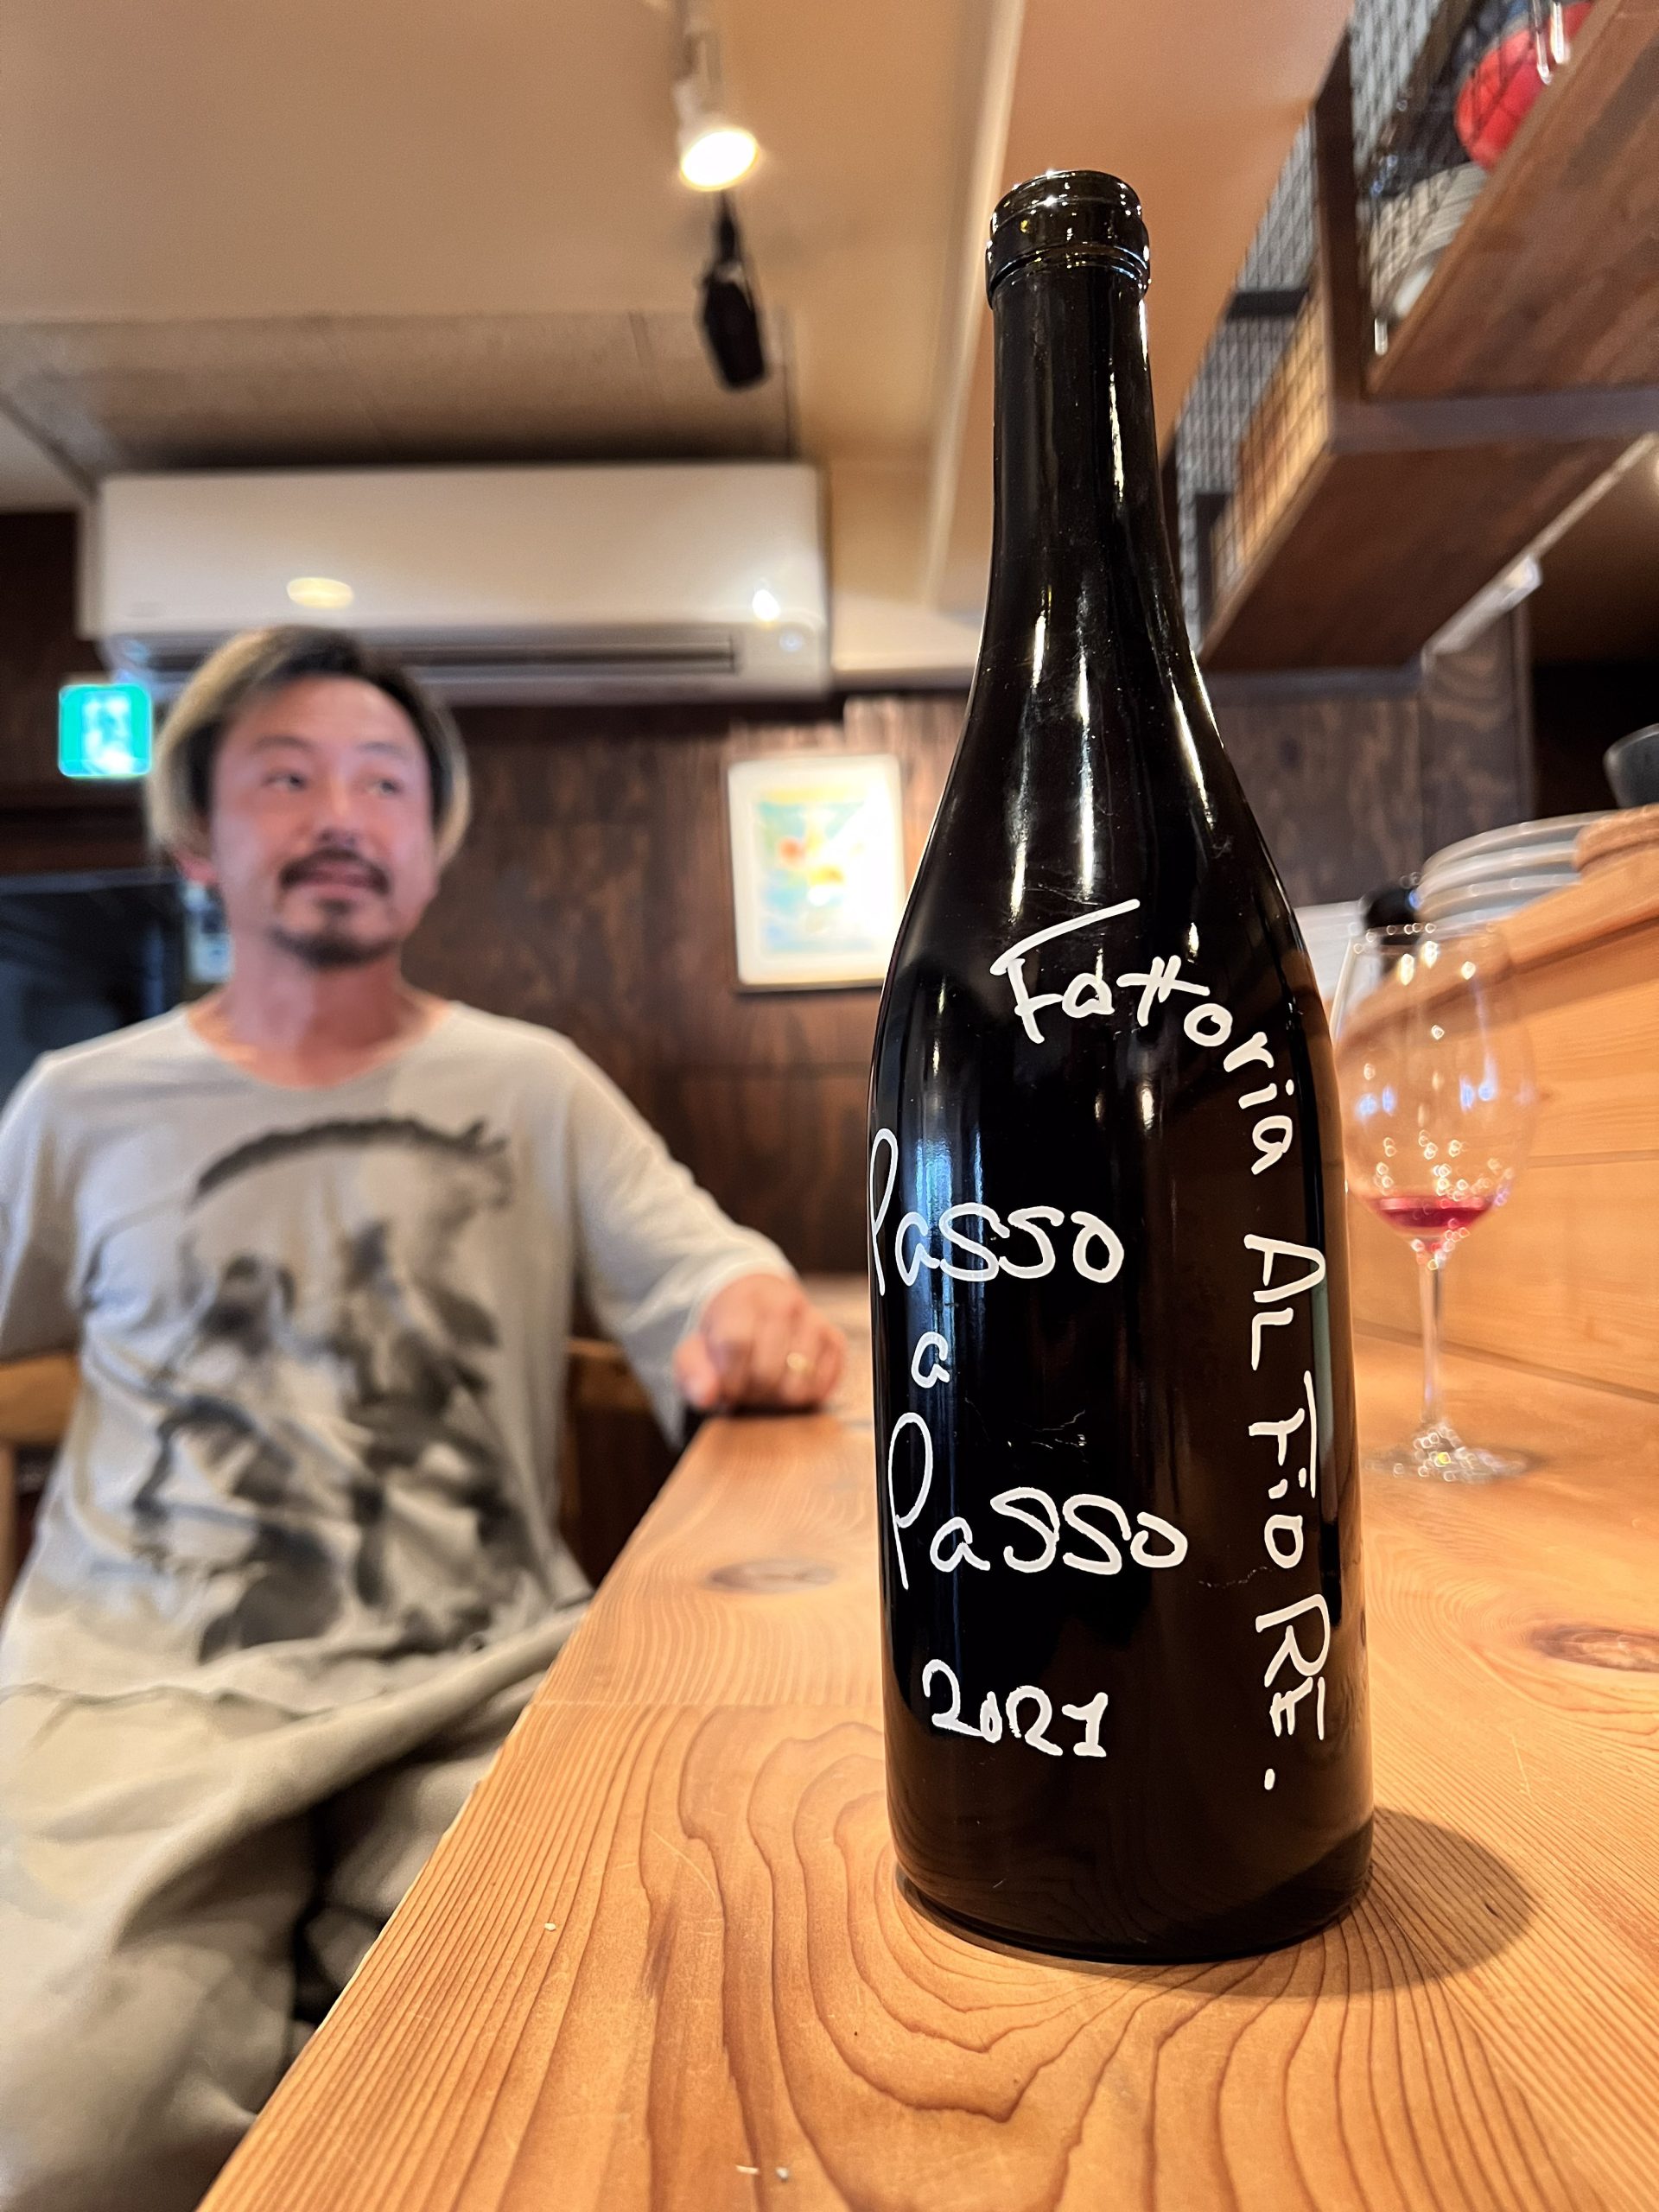 Fattoria AL FiORE.
Passo
a
Passo
2021